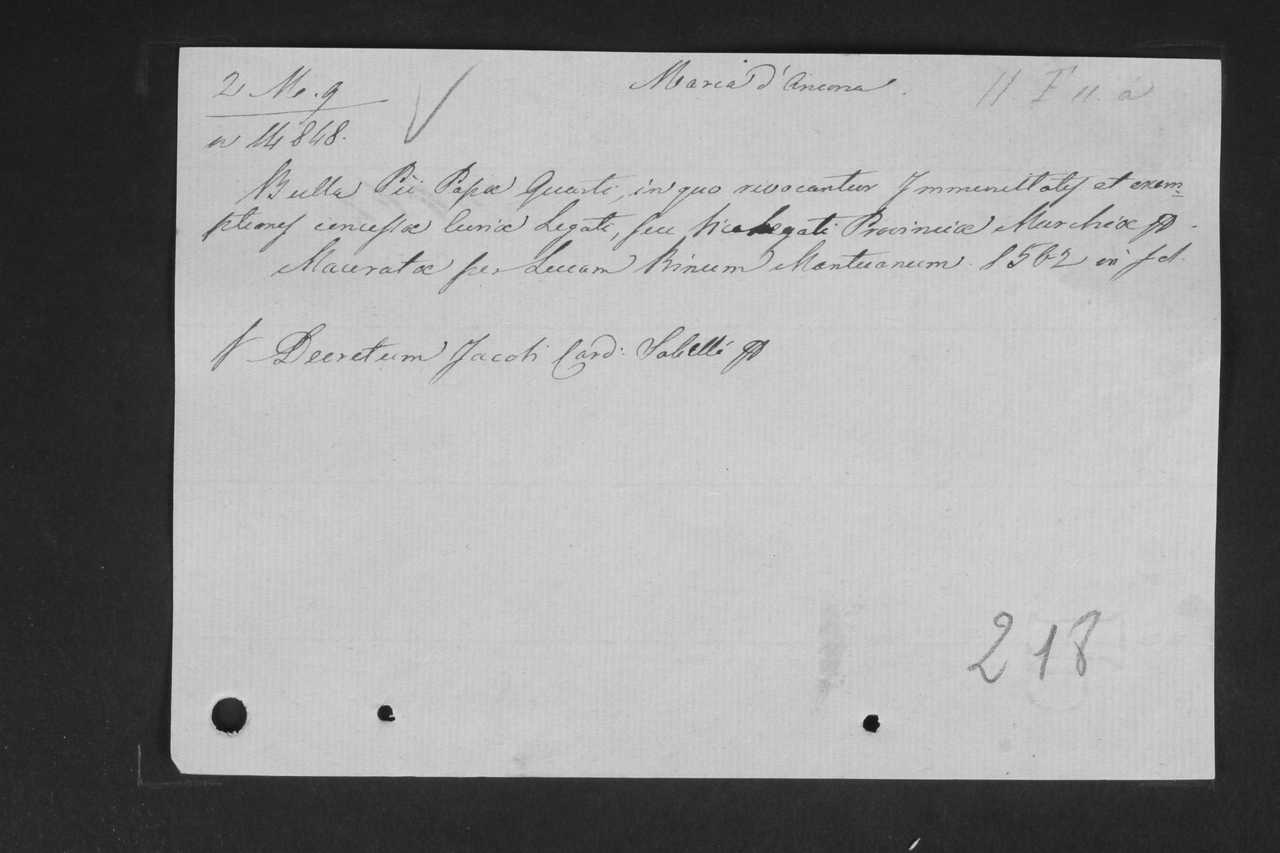 2 M. q
n 14848.
Marca d'Ancona.
H. F. a
Bulla Pii Papæ Quarti, in quo revocantur Immunitates et exem=
ptiones concessæ Curiæ Legati, seu Vicelegati Provinciæ Marchiæ
Maceratæ per Lucam Binum Mantuanum. 1562 in fol.
V Decretum Jacobi Card: Sabelli
218